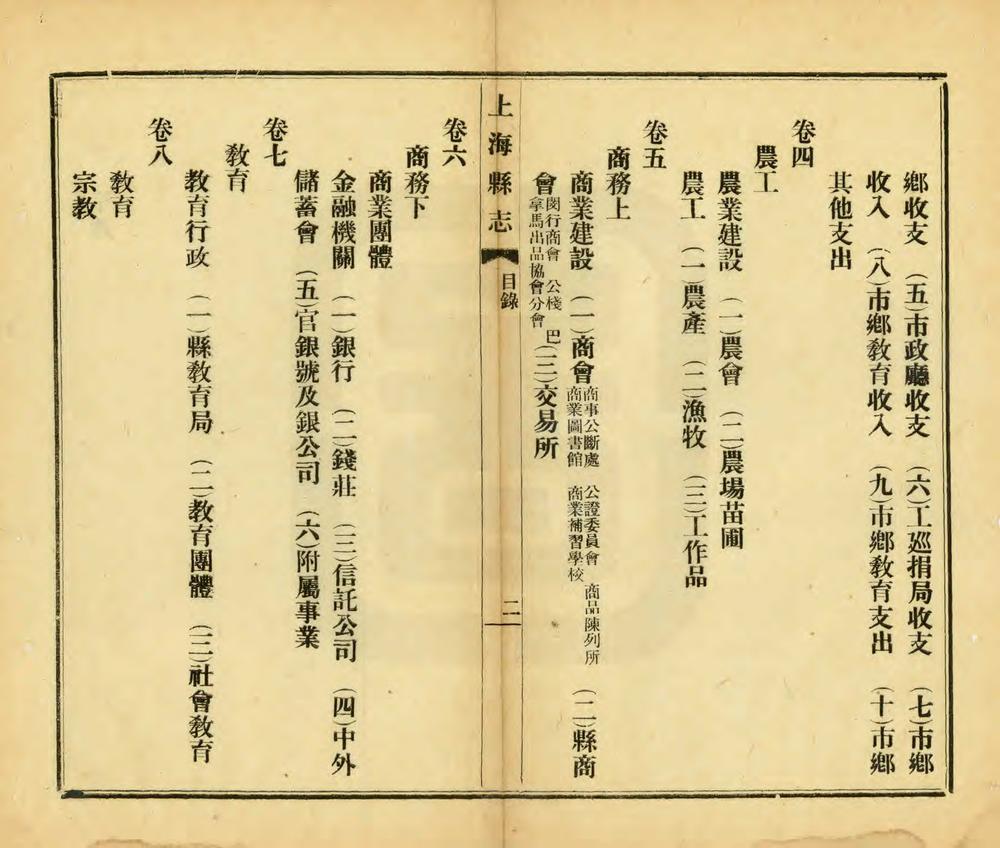 鄉收支　(五)市政廳收支　(六)工巡捐局收支　(七)市鄉
收入　(八)市鄉教育收入　(九)市鄉教育支出　(十)市鄉
其他支出
卷四
農工
農業建設　(一)農會　(二)農場苗圃
農工　(一)農產　(二)漁牧　(三)工作品
卷五
商務上
商業建設　(一)商會商事公斷處　公證委員會　商品陳列所　商業圖書館　商業補習學校　(二)縣商
會閔行商會　公棧　巴拿馬出品協會分會(三)交易所
上海縣志　目錄　二
卷六
商務下
商業團體
金融機關　(一)銀行　(二)錢莊　(三)信託公司　(四)中外
儲蓄會　(五)官銀號及銀公司　(六)附屬事業
卷七
教育
教育行政　(一)縣教育局　(二)教育團體　(三)社會教育
卷八
教育
宗教